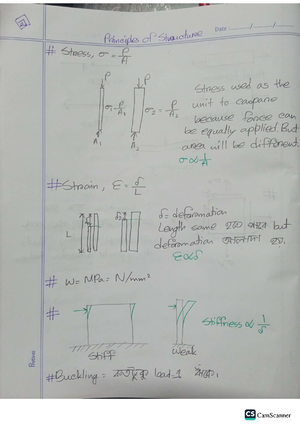 Principles of Structure
Date:
# Stress, σ = P/A
P
P
σ₁ = P/A₁
σ₂ = P/A₂
A₁
A₂
Stress used as the
unit to compare
because force can
be equally applied. But
area will be different.
σ ∝ 1/A
# Strain, ε = δ/L
L
δ = deformation
Length same but
deformation
ε ∝ δ
# MPa = N/mm²
#
Stiff
weak
Stiffness ∝ 1/δ
# Buckling = load
CS CamScanner